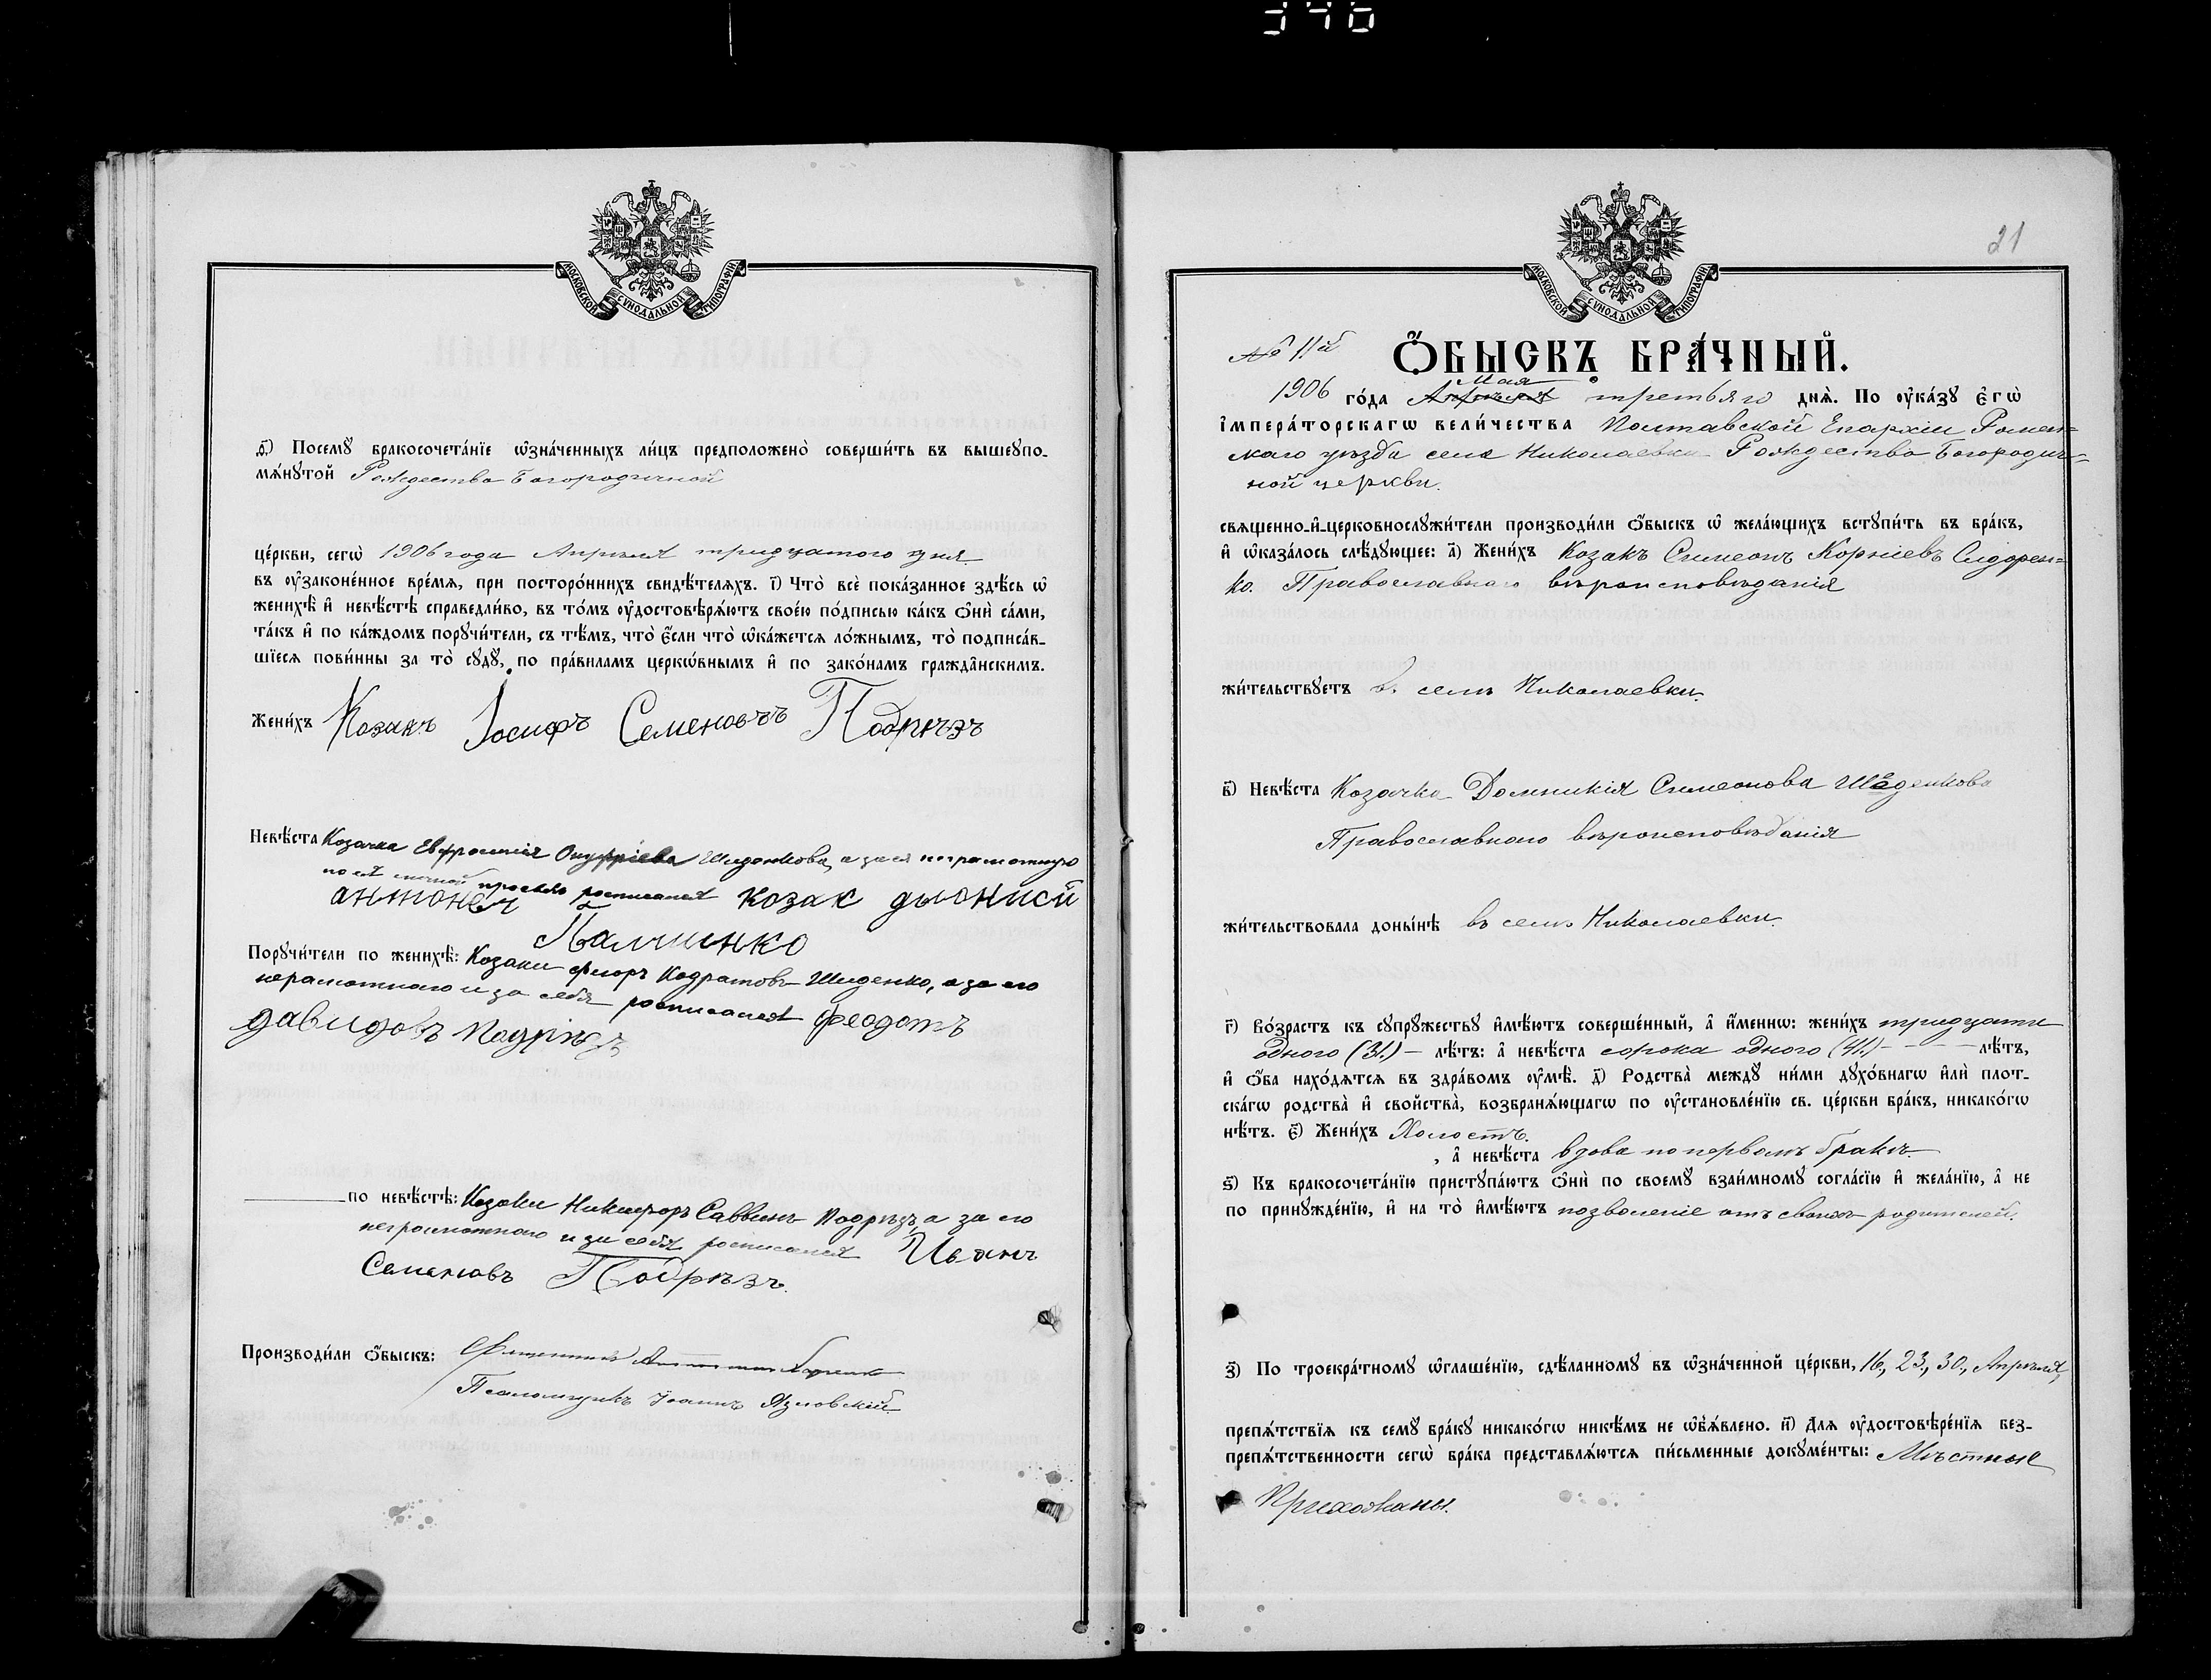 346
МОСКОВСКОЙ СѴНОДАЛЬНОЙ ТИПОГРАФІИ
ѳ҃) Посемꙋ бракосочета́нїе ѡ҆зна́ченныхъ ли́цъ предположено̀ соверши́ть въ вышеꙋпо-
мѧ́нꙋтой Рождество Богородичной
це́ркви, сегѡ̀ 1906 года Апрѣля тридцатого дня
въ ᲂу҆законе́нное вре́мѧ, при посторо́ннихъ свидѣ́телѧхъ. і҃) Что̀ всѐ пока́занное здѣ́сь ѡ҆
женихѣ̀ и҆ невѣ́стѣ справедли́во, въ то́мъ ᲂу҆достовѣрѧ́ютъ свое́ю по́дписью ка́къ ѻ҆нѝ са́ми,
та́къ и҆ по ка́ждомъ порꙋчи́тели, съ тѣ́мъ, что̀ є҆́сли что̀ ѡ҆ка́жетсѧ ло́жнымъ, то̀ подписа́в-
шїесѧ пови́нны за то̀ сꙋдꙋ̀, по пра́виламъ церкѡ́внымъ и҆ по зако́намъ гражда́нскимъ.
Жени́хъ Козакъ Іосифъ Семеновъ Подрѣзъ
Невѣ́ста Козачка Евфросинія Онуфріева Шиденкова, а за ея неграмотную
по ея личной просьбѣ росписался козак дионисй
антонович
Палчинко
Порꙋчи́тели по женихѣ̀: Козаки Кодратовъ Шиденко, а за его
неграмотного и за себя росписался феодотъ
давидовъ Подрѣзъ
по невѣ́стѣ: Козаки Никифоръ Саввинъ Подрѣзъ, а за его
неграмотного и за себя росписался Иванъ
Семеновъ Подрѣзъ.
Производи́ли ѻ҆́быскъ: Священникъ
Псаломщикъ Іоаннъ Язловскій
МОСКОВСКОЙ СѴНОДАЛЬНОЙ ТИПОГРАФІИ
21
№ 11й Ѻ҆́БЫСКЪ БРА́ЧНЫЙ.
Мая
1906 го́да Апрѣля третьяго днѧ̀. По ᲂу҆ка́зꙋ є҆гѡ̀
і҆мпера́торскагѡ вели́чества Полтавской Епархіи Ромен=
скаго уѣзда села Николаевки Рождество Богородич=
ной церкви.
свѧщенно-и҆-церковнослꙋжи́тели производи́ли ѻ҆́быскъ ѡ҆ жела́ющихъ встꙋпи́ть въ бра́къ,
и҆ ѡ҆каза́лось слѣ́дꙋющее: а҃) Жени́хъ Козакъ Симеонъ Корніевъ Сидорен=
ко. Православнаго вѣроисповѣданія
жи́тельствꙋетъ въ селѣ Николаевки.
в҃) Невѣ́ста Козачка Домникія Симеонова Шеденкова
Православнаго вѣроисповѣданія
жи́тельствовала доны́нѣ въ селѣ Николаевки.
г҃) Во́зрастъ къ сꙋпрꙋ́жествꙋ и҆мѣ́ютъ соверше́нный, а҆ и҆́меннѡ: жени́хъ тридцати
одного (31.) – лѣ́тъ: а҆ невѣ́ста сорока одного (41.) - - - - лѣ́тъ,
и҆ ѻ҆́ба нахо́дѧтсѧ въ здра́вомъ ᲂу҆мѣ̀. д҃) Родства̀ междꙋ̀ ни́ми дꙋхо́внагѡ и҆лѝ плот-
ска́гѡ родства̀ и҆ сво́йства̀, возбранѧ́ющагѡ по ᲂу҆становле́нїю св. це́ркви бра́къ, никако́гѡ
нѣ́тъ. є҃) Жени́хъ Холостъ.
, а҆ невѣ́ста вдова по первомъ бракѣ.
ѕ҃) Къ бракосочета́нїю пристꙋпа́ютъ ѻ҆нѝ по своемꙋ̀ взаи́мномꙋ согла́сїю и҆ жела́нїю, а҆ не
по принꙋжде́нїю, и҆ на то̀ и҆мѣ́ютъ позволеніе отъ своихъ родителей.
з҃) По троекра́тномꙋ ѡ҆глаше́нїю, сдѣ́ланномꙋ въ ѡ҆зна́ченной це́ркви, 16., 23., 30., Апрѣля,
препѧ́тствїѧ къ семꙋ̀ бра́кꙋ никако́гѡ никѣ́мъ не ѡ҆б̾ѧ́влено. и҃) Длѧ ᲂу҆достовѣре́нїѧ без-
препѧ́тственности сегѡ̀ бра́ка представлѧ́ютсѧ пи́сьменные докꙋме́нты: Мѣстные
Прихожаны.